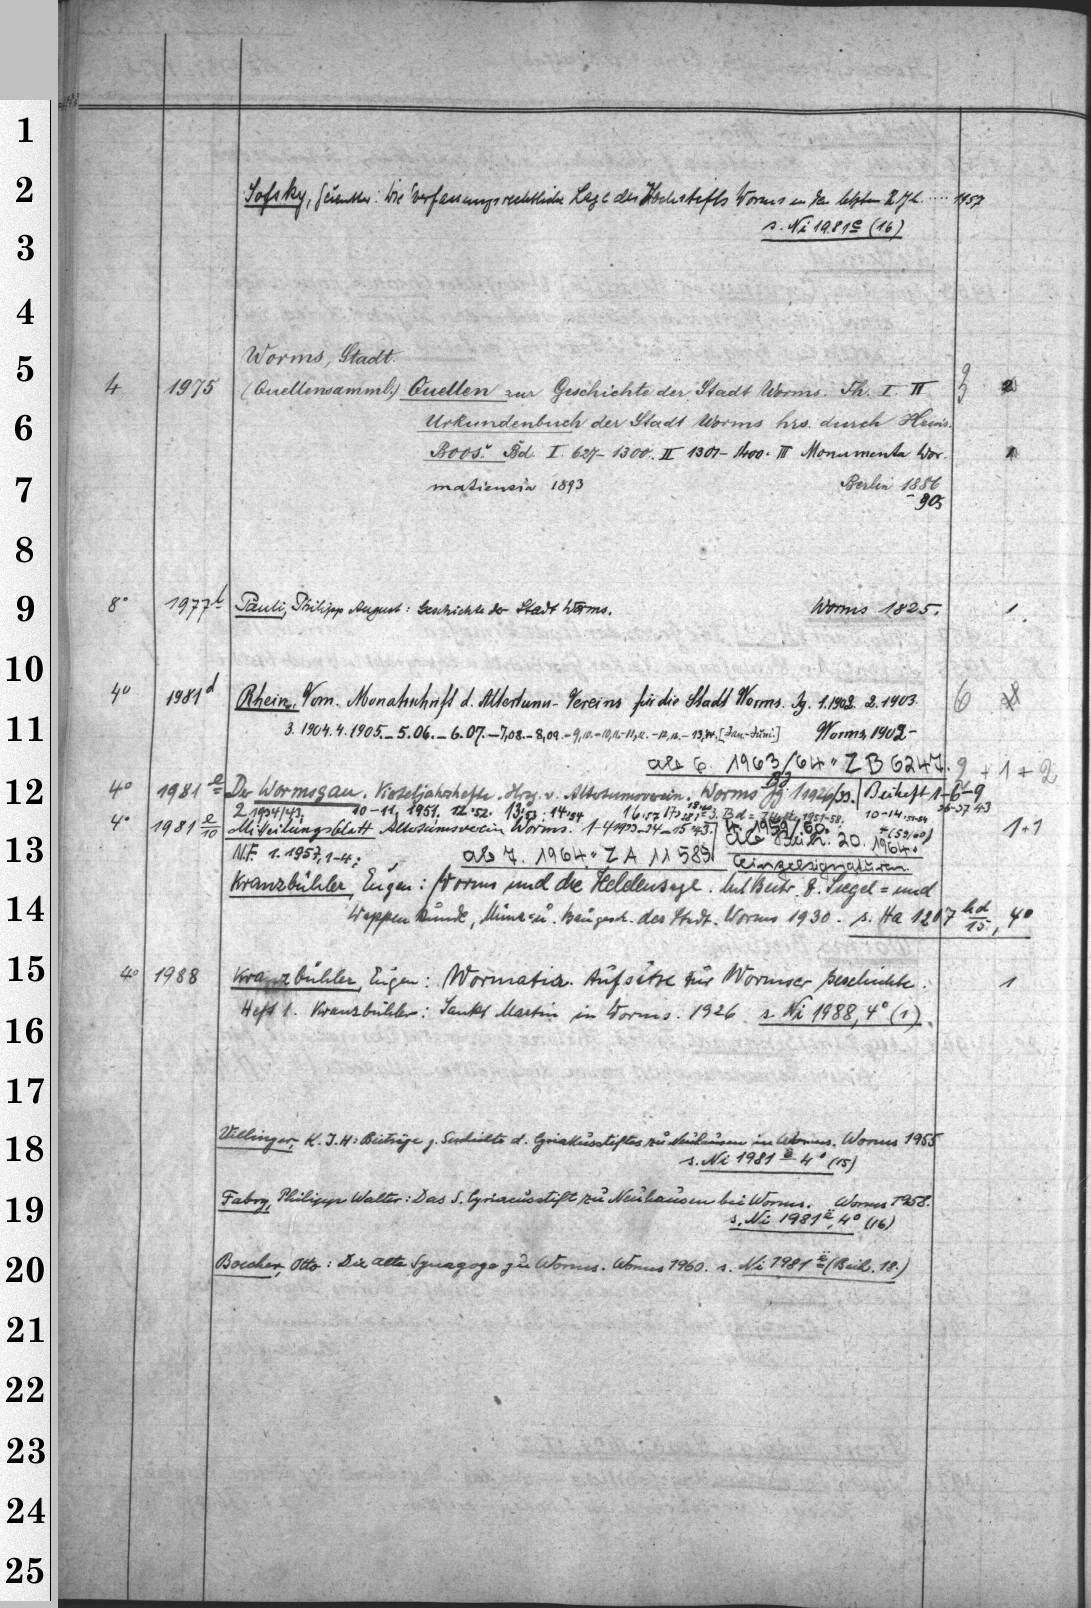 1
2 Sofsky, Günther: Die verfassungsrechtliche Lage des Hochstifts Worms in den letzten 2 Jh. .... 1957
s. Ni 1981e (16)
3
4
Worms, Stadt.
5
4 1975 (Quellensamml.) Quellen zur Geschichte der Stadt Worms. Th. I. II 3 2
6 Urkundenbuch der Stadt Worms hrs. durch Heinr.
Boos. Bd. I. 627-1300. II 1301-1400. III Monumenta Wor- 1
7 matiensia 1893 Berlin 1886
-93
8
9 8° 1977b Pauli, Philipp August: Geschichte der Stadt Worms. Worms 1825. 1
10
4° 1981d Rhein, Vom. Monatsschrift d. Altertums-Vereins für die Stadt Worms. Jg. 1.1902. 2.1903. 6
11 3. 1904. 4. 1905. - 5.06. - 6.07. - 7,08. - 8,09. [Jan-Juni] Worms, 1902-
ab 6. 1963/64 = ZB 6247. 9 + 1 + 2
12 4° 1981e Der Wormsgau. Vierteljahrshefte. Hrg. v. Altertumsverein. Worms Jg 1 1926/33. Beiheft 1-6-9
2. 1934/43; 10-11, 1951, 12.52. 13.53; 14.54 16.57 3. Bd = 1951-58. 10-14. 36-37 43
4° 1981e/10 Mitteilungsblatt Altertumsverein Worms. 1-4 1933-34-15 43. 4. 1959/60. + (59/60) 1+1
13 ab Beih. 20. 1964:
N.F. 1. 1957, 1-4; ab 7. 1964: ZA 11583 Einzelsignaturen
Kranzbühler, Eugen: Worms und die Heldensage. Mit Beitr. z. Siegel= und
14 Wappenkunde, Münz= u. Baugesch. der Stadt. Worms 1930. s. Ha 1207 hd/15, 4°
15 4° 1988 Kranzbühler, Eugen: Wormatia. Aufsätze zur Wormser Geschichte. 1
Heft 1. Kranzbühler: Sankt Martin in Worms. 1926 s. Ni 1988, 4° (1)
16
17
18 Villinger, K. J. H: Beiträge z. Geschichte d. Cyriakusstiftes zu Neuhausen in Worms. Worms 1955
s. Ni 1981e 4° (15)
19 Fabry, Philipp Walter: Das S. Cyriacusstift zu Neuhausen bei Worms. Worms 1958.
s. Ni 1981e, 4° (16)
20 Boecher, Otto: Die alte Synagoge zu Worms. Worms 1960. s. Ni 1981e (Beih. 18.)
21
22
23
24
25